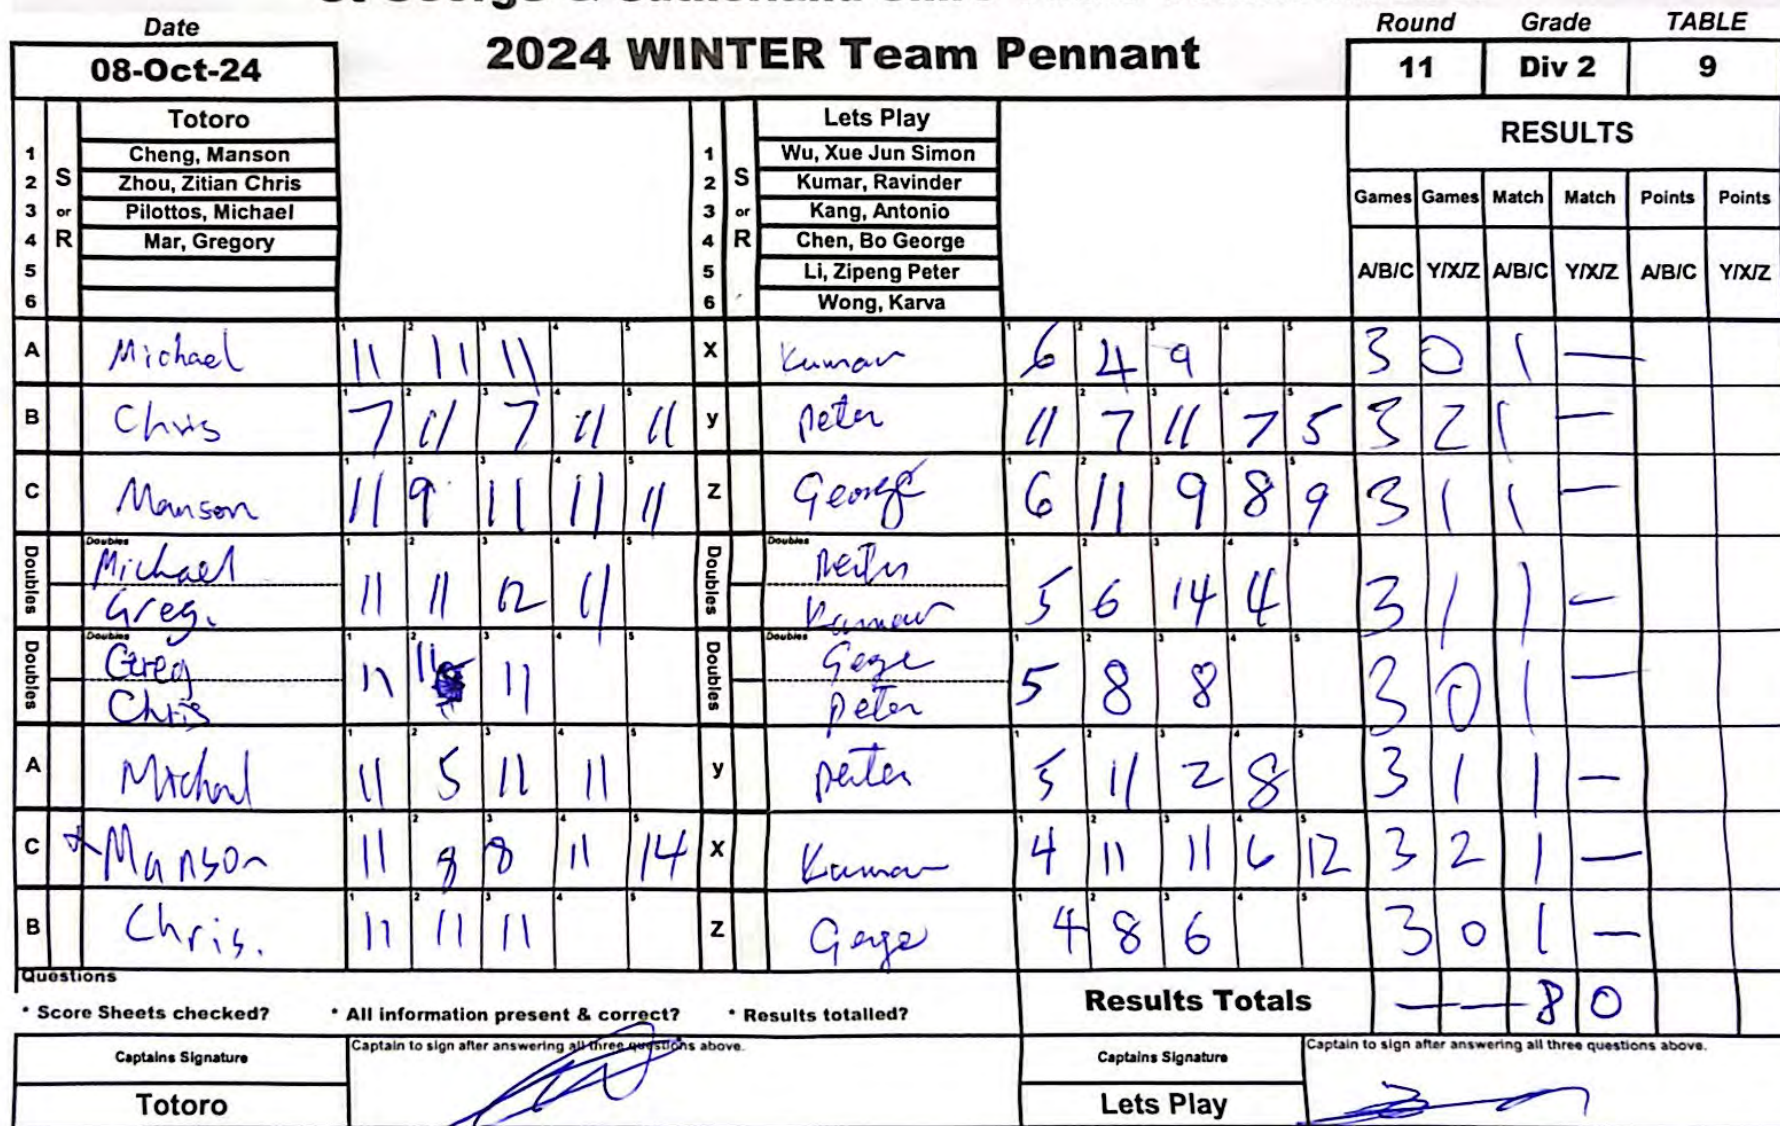 Date
08-Oct-24
2024 WINTER Team Pennant
Round Grade TABLE
11 Div 2 9
Totoro
1 Cheng, Manson
2 Zhou, Zitian Chris
3 Pilottos, Michael
4 Mar, Gregory
5
6
S or R
Lets Play
1 Wu, Xue Jun Simon
2 Kumar, Ravinder
3 Kang, Antonio
4 Chen, Bo George
5 Li, Zipeng Peter
6 Wong, Karva
S or R
RESULTS
Games Games Match Match Points Points
A/B/C Y/X/Z A/B/C Y/X/Z A/B/C Y/X/Z
A Michael 11 11 11 X Kumar 6 4 9 3 0 1 —
B Chris 7 11 7 11 11 y Peter 11 7 11 7 5 3 2 1 —
C Manson 11 9 11 11 11 Z George 6 11 9 8 9 3 1 1 —
Doubles Michael Greg. 11 11 12 11 Doubles Peter Kumar 5 6 14 4 3 1 1 —
Doubles Greg Chris 11 11 11 Doubles Geoge Peter 5 8 8 3 0 1 —
A Michael 11 5 11 11 y Peter 5 11 2 8 3 1 1 —
C Manson 11 8 8 11 14 X Kumar 4 11 11 6 12 3 2 1 —
B Chris. 11 11 11 Z Geoge 4 8 6 3 0 1 —
Questions
* Score Sheets checked? * All information present & correct? * Results totalled?
Results Totals — — 8 0
Captains Signature
Captain to sign after answering all three questions above.
Totoro
Captains Signature
Captain to sign after answering all three questions above.
Lets Play